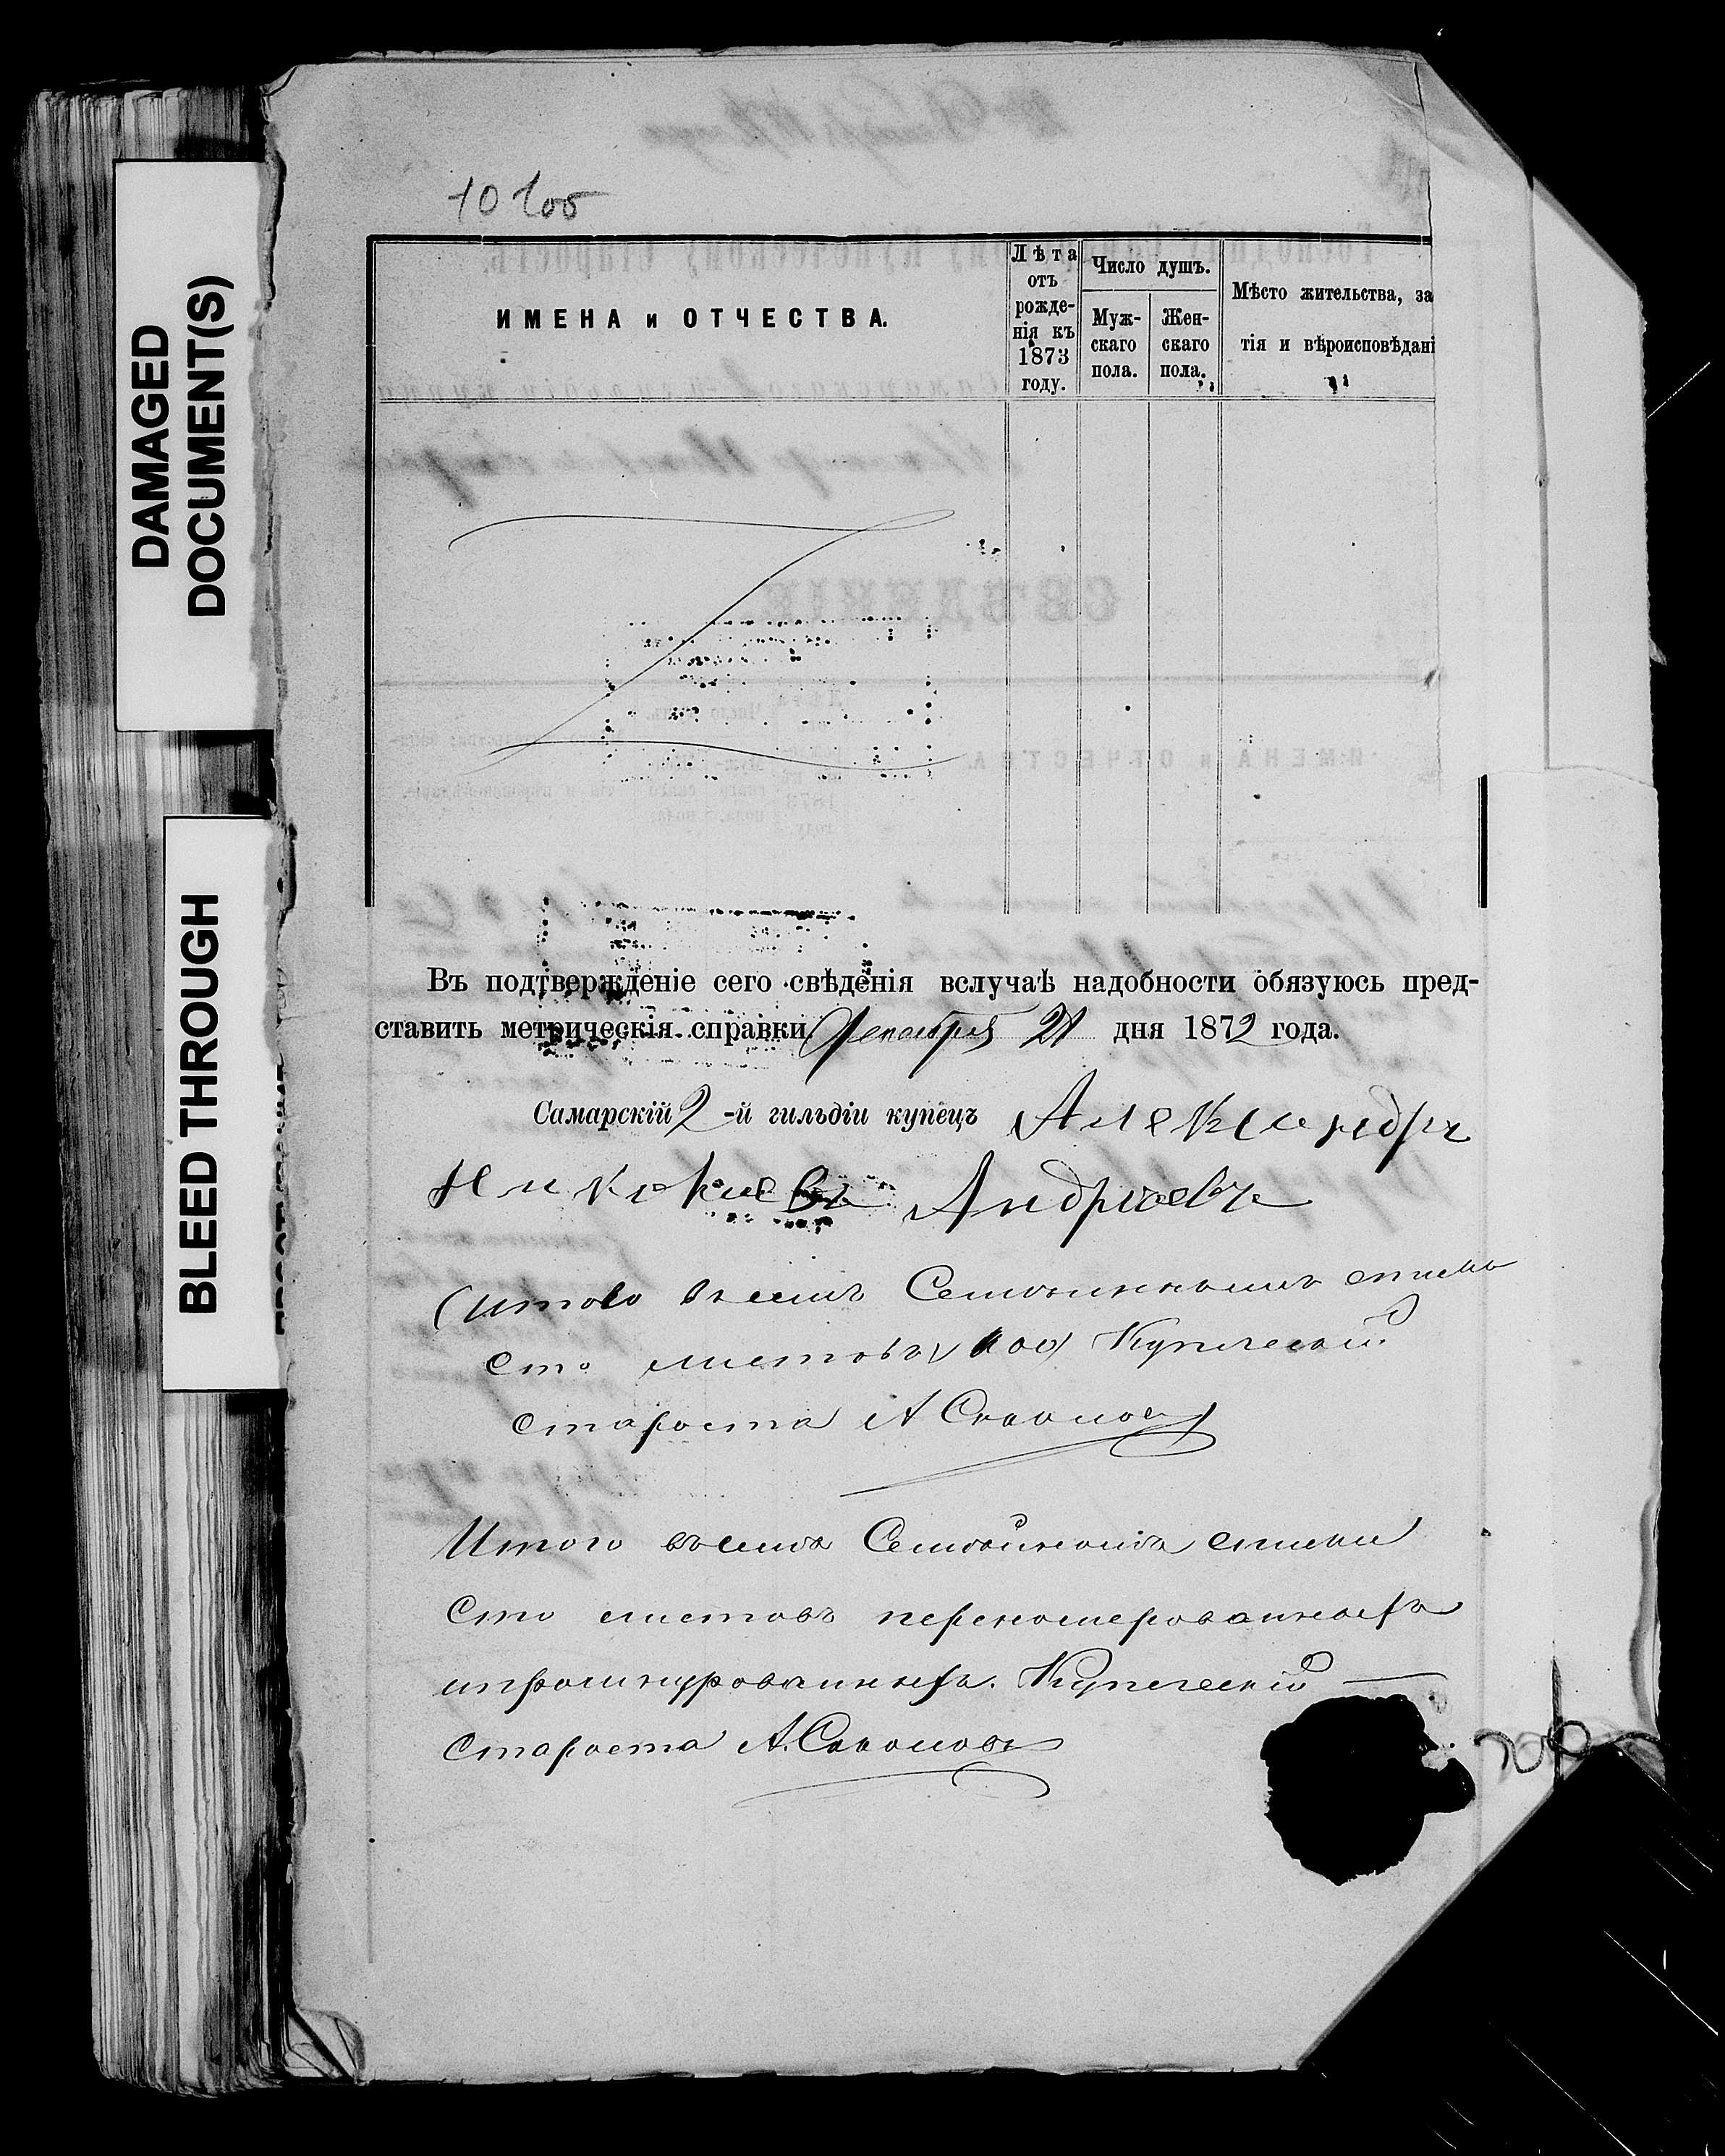 DAMAGED
DOCUMENT(S)
BLEED THROUGH
10 100
ИМЕНА и ОТЧЕСТВА.
Лѣта
отъ
рожде-
нія къ
1873
году.
Число душъ.
Муж-
скаго
пола.
Жен-
скаго
пола.
Мѣсто жительства, за
тія и вѣроисповѣдані
Въ подтвержденіе сего свѣденія вслучаѣ надобности обязуюсь пред-
ставить метрическія справки Декабря 21 дня 1872 года.
Самарскій 2-й гильдіи купецъ Александръ
Андреевъ
Итого всемъ Семейномъ
Сто листовъ 100 Купеческій
Староста А Соколовъ
Итого въ семъ Семейномъ списки
Сто листовъ перенумерованныхъ
ипрошнурованныхъ. Купеческій
Староста А. Соколовъ